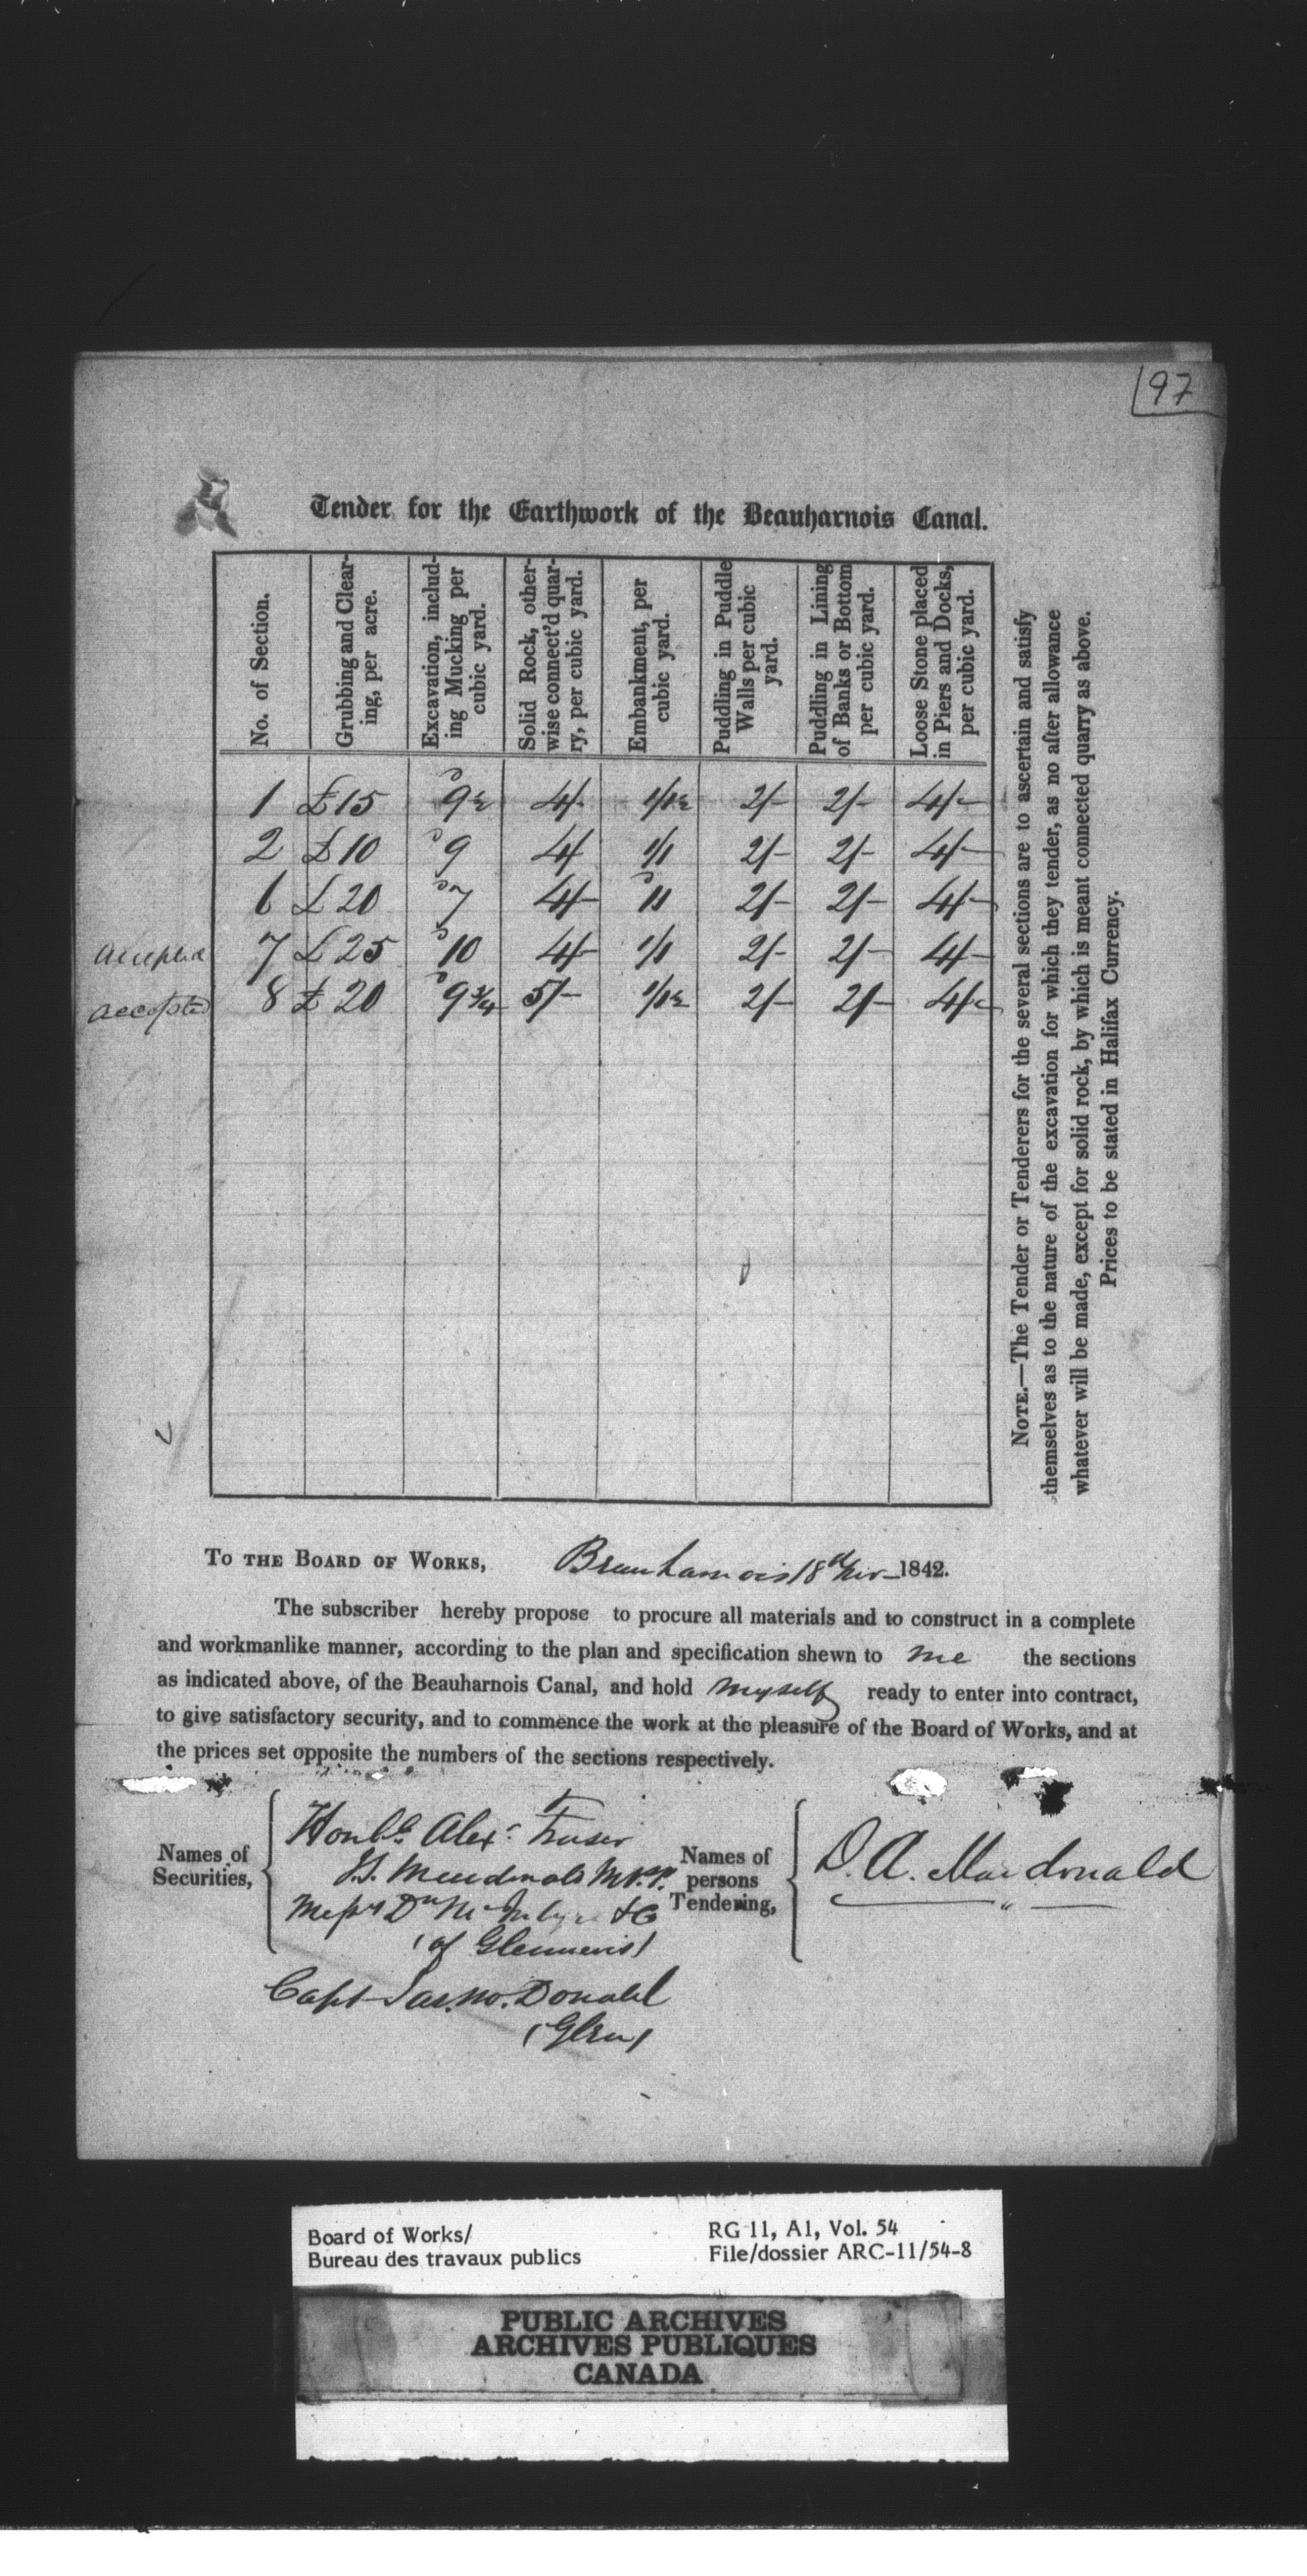 97
Tender for the Earthwork of the Beauharnois Canal.
No. of Section.
Grubbing and Clear-
ing, per acre.
Excavation, includ-
ing Mucking per
cubic yard.
Solid Rock, other-
wise connect'd quar-
ry, per cubic yard.
Embankment, per
cubic yard.
Puddling in Puddle
Walls per cubic
yard.
Puddling in Lining
of Banks or Bottom
per cubic yard.
Loose Stone placed
in Piers and Docks,
per cubic yard.
1 £15 9½ 4/- 1/1½ 2/- 2/- 4/-
2 £10 9 4/ 1/1 2/- 2/- 4/-
6 £20 7 4/- 11 2/- 2/- 4/-
accepted 7 £25 10 4/- 1/1 2/- 2/- 4/-
accepted 8 £20 9¾ 5/- 1/1½ 2/- 2/- 4/-
NOTE.—The Tender or Tenderers for the several sections are to ascertain and satisfy
themselves as to the nature of the excavation for which they tender, as no after allowance
whatever will be made, except for solid rock, by which is meant connected quarry as above.
Prices to be stated in Halifax Currency.
TO THE BOARD OF WORKS, Beauharnois 18 1842.
The subscriber hereby propose to procure all materials and to construct in a complete
and workmanlike manner, according to the plan and specification shewn to me the sections
as indicated above, of the Beauharnois Canal, and hold myself ready to enter into contract,
to give satisfactory security, and to commence the work at the pleasure of the Board of Works, and at
the prices set opposite the numbers of the sections respectively.
Names of
Securities,
Honble Alexr Fraser
J.S. Macdonald M.P.P.
Messrs Dn McIntyre & Co
(of Glennevis)
Capt Jas. McDonald
(Glen)
Names of
persons
Tendering,
D. A. Macdonald
Board of Works/
Bureau des travaux publics
RG 11, A1, Vol. 54
File/dossier ARC-11/54-8
PUBLIC ARCHIVES
ARCHIVES PUBLIQUES
CANADA